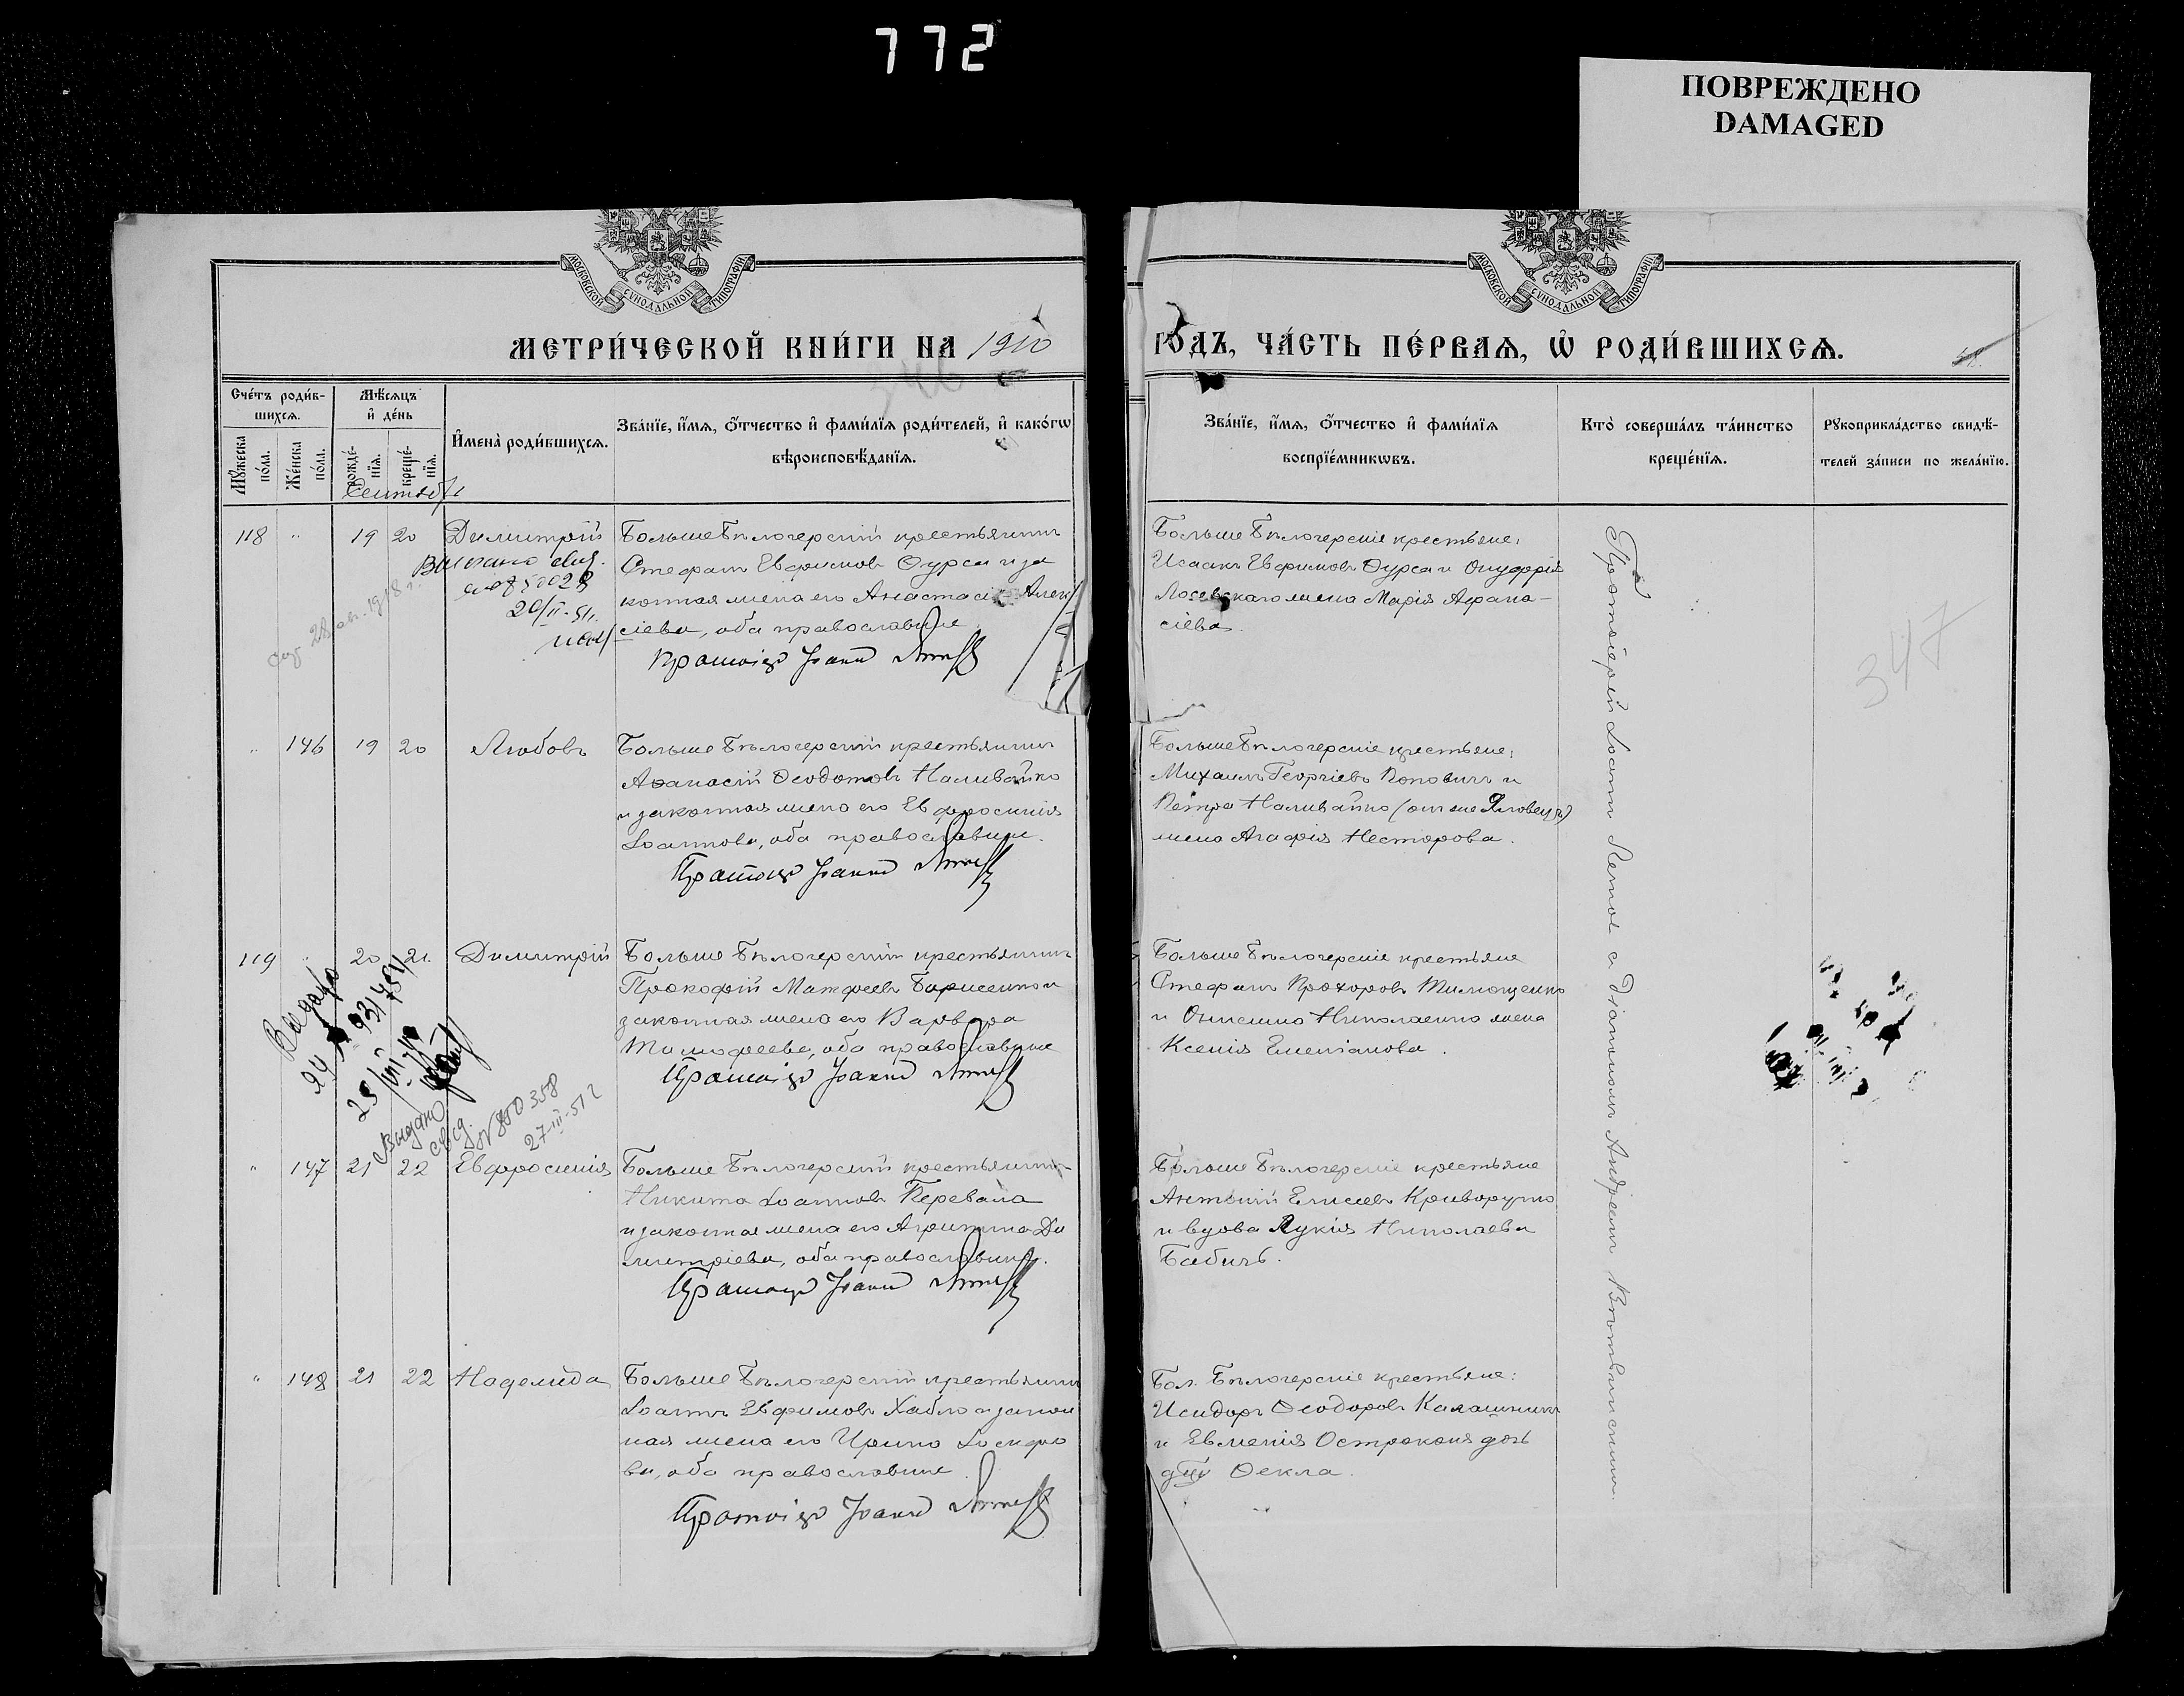 772
ПОВРЕЖДЕНО
DAMAGED
МОСКОВСКОЙ СУНОДАЛЬНОЙ ТИПОГРАФІИ
МОСКОВСКОЙ СУНОДАЛЬНОЙ ТИПОГРАФІИ
МЕТРИ́ЧЕСКОЙ КНИ́ГИ НА 1910
ГО́ДЪ, ЧА́СТЬ ПЕ́РВАѦ, Ѡ РОДИ́ВШИХСѦ.
346
Сче́тъ роди́в-
шихсѧ.
Мꙋ́жеска по́ла.
Же́нска по́ла.
Мѣ́сѧцъ
и҆ де́нь
рожде́-нїѧ.
креще́-нїѧ.
И҆мена̀ роди́вшихсѧ.
Зва́нїе, и҆́мѧ, ѻ҆́тчество и҆ фами́лїѧ роди́телей, и҆ како́гѡ
вѣроисповѣ́данїѧ.
Зва́нїе, и҆́мѧ, ѻ҆́тчество и҆ фами́лїѧ
воспрїе́мникѡвъ.
Кто̀ соверша́лъ та́инство
креще́нїѧ.
Рꙋкоприкла́дство свидѣ́-
телей за́писи по жела́нїю.
Сентябрь
118 " 19 20 Димитрій
Больше Бѣлозерскій крестьянинъ
Стефанъ Евфимовъ Ѳурса и за
конная жена его Анастасія Алек
сіева, оба православные
Протоіер Іоаннъ
Больше Бѣлозерскіе крестьяне:
Исаакъ Евфимовъ Ѳурса и Онуфрія
Лосевскаго жена Марія Афана-
сіева.
20/II-51г.
347
" 146 19 20 Любовь
Больше Бѣлозерскій крестьянинъ
Афанасій Ѳеодотовъ Наливайко
и законная жена его Евфросинія
Іоаннова, оба православные.
Протоіер Іоаннъ
Больше Бѣлозерскіе крестьяне:
Михаилъ Георгіевъ Поповичъ и
Петра Наливайко (он же Яловецъ)
жена Агафія Несторова.
119 " 20 21 Димитрій
Больше Бѣлозерскій крестьянинъ
Прокофій Матфеевъ Борисенко и
законная жена его Варвара
Тимофеева, оба православные
Протоіер Іоаннъ
Больше Бѣлозерскіе крестьяне
Стефанъ Прохоровъ Тимощенко
и Николаенко жена
Ксенія Емеліанова.
Выдано
свид.
№ 850358
27-III-51г
" 147 21 22 Евфросинія
Больше Бѣлозерскій крестьянинъ
Никита Іоанновъ Перевала
и законная жена его Агрипина Ди
митріева, оба православные.
Протоіер Іоаннъ
Больше Бѣлозерскіе крестьяне
Антоній Елисеевъ Криворучко
и вдова Лукія Николаева
Бабичъ.
" 148 21 22 Надежда
Больше Бѣлозерскій крестьянинъ
Іоаннъ Евфимовъ Хабло и закон
ная жена его Ирина Іосифо
ва, оба православные.
Протоіер Іоаннъ
Бол. Бѣлозерскіе крестьяне:
Исидоръ Ѳеодоровъ Калашникъ
и Евменія Остроконя дочь
дѣв Ѳекла.
Протоіерей Іоаннъ с діакономъ Андреемъ